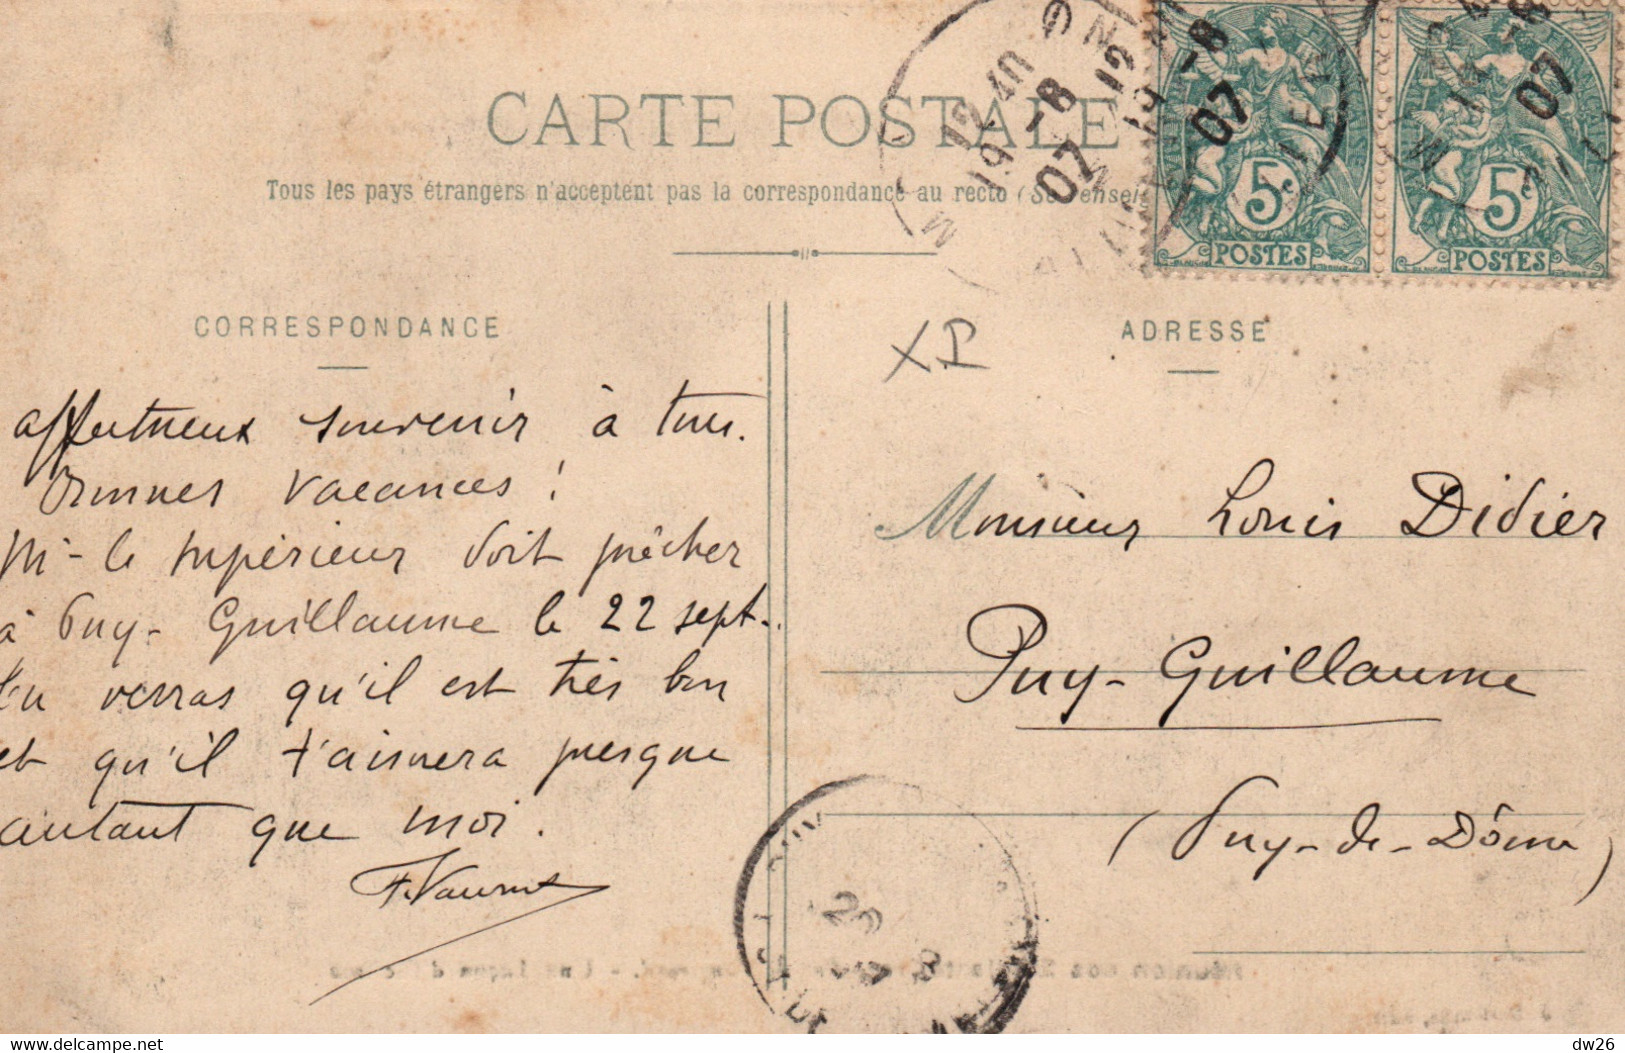 CARTE POSTALE
Tous les pays étrangers n'acceptent pas la correspondance au recto (Se
CORRESPONDANCE
affectueux souvenir à tous.
Bonnes vacances !
Mr le supérieur doit prêcher
à Puy-Guillaume le 22 sept.
tu verras qu'il est très bon
et qu'il t'aimera presque
autant que moi.
ADRESSE
Monsieur Louis Didier
Puy-Guillaume
(Puy-de-Dôme)
12 40
19 -8
07
19 -8
07
07
5c
POSTES
5c
POSTES
Delcampe.net
dw26